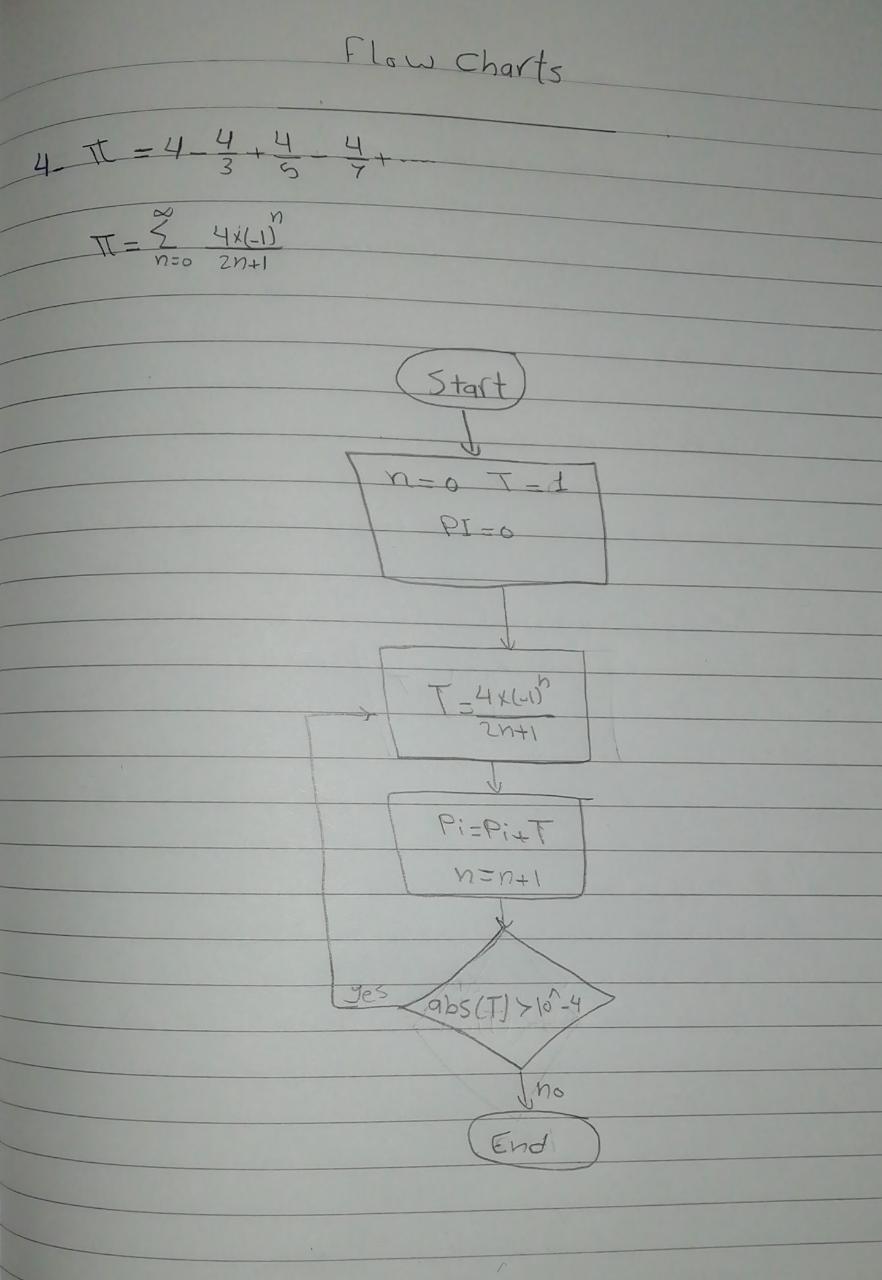 Flow Charts
4- π = 4 - 4/3 + 4/5 - 4/7 + ----
π = ∞ Σ n=0 4×(-1)^n / 2n+1
Start
n=0 T=1
PI=0
T = 4×(-1)^n / 2n+1
Pi=Pi+T
n=n+1
yes abs(T)>10^-4
no
End